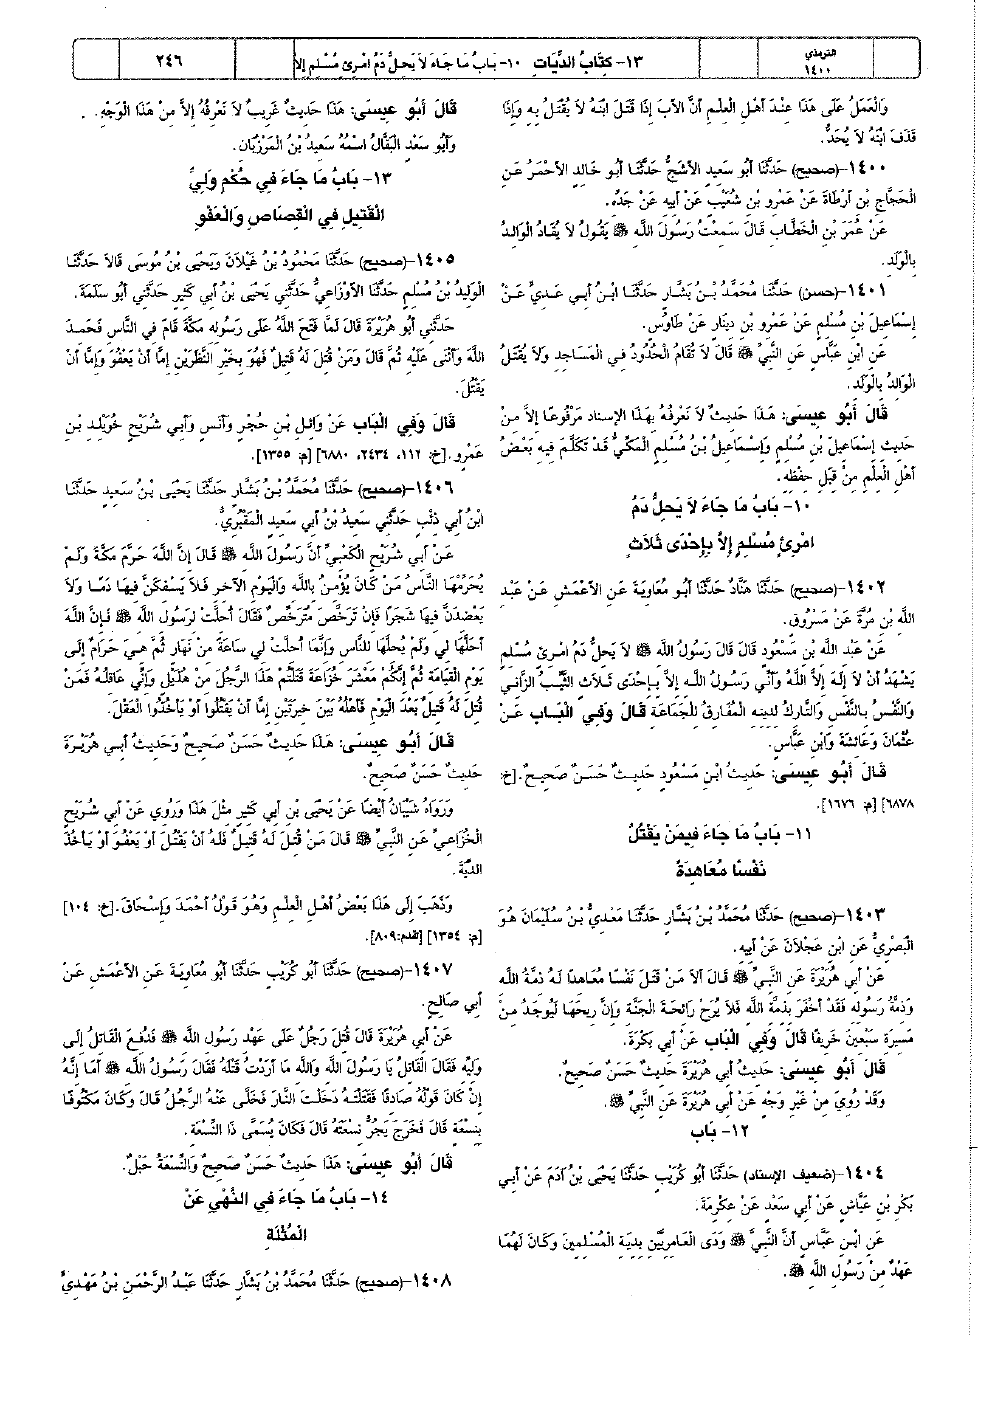 الترمذي
١٤٠٠
١٣- كِتَابُ الدِّيَاتِ ١٠- بَابُ مَا جَاءَ لاَ يَحِلُّ دَمُ امْرِئٍ مُسْلِمٍ إلا
٢٤٦
وَالْعَمَلُ عَلَى هَذَا عِنْدَ أَهْلِ الْعِلْمِ أَنَّ الأَبَ إِذَا قَتَلَ ابْنَهُ لاَ يُقْتَلُ بِهِ وَإِذَا
قَذَفَ ابْنَهُ لاَ يُحَدُّ.
١٤٠٠-(صحيح) حَدَّثَنَا أَبُو سَعِيدٍ الأَشَجُّ حَدَّثَنَا أَبُو خَالِدٍ الأَحْمَرُ عَنِ
الْحَجَّاجِ بْنِ أَرْطَاةَ عَنْ عَمْرِو بْنِ شُعَيْبٍ عَنْ أَبِيهِ عَنْ جَدِّهِ.
عَنْ عُمَرَ بْنِ الْخَطَّابِ قَالَ سَمِعْتُ رَسُولَ اللَّهِ ﷺ يَقُولُ لاَ يُقَادُ الْوَالِدُ
بِالْوَلَدِ.
١٤٠١-(حسن) حَدَّثَنَا مُحَمَّدُ بْنُ بَشَّارٍ حَدَّثَنَا ابْنُ أَبِي عَدِيٍّ عَنْ
إِسْمَاعِيلَ بْنِ مُسْلِمٍ عَنْ عَمْرِو بْنِ دِينَارٍ عَنْ طَاوُسٍ.
عَنِ ابْنِ عَبَّاسٍ عَنِ النَّبِيِّ ﷺ قَالَ لاَ تُقَامُ الْحُدُودُ فِي الْمَسَاجِدِ وَلاَ يُقْتَلُ
الْوَالِدُ بِالْوَلَدِ.
قَالَ أَبُو عِيسَى: هَذَا حَدِيثٌ لاَ نَعْرِفُهُ بِهَذَا الإِسْنَادِ مَرْفُوعًا إِلاَّ مِنْ
حَدِيثِ إِسْمَاعِيلَ بْنِ مُسْلِمٍ وَإِسْمَاعِيلُ بْنُ مُسْلِمٍ الْمَكِّيُّ قَدْ تَكَلَّمَ فِيهِ بَعْضُ
أَهْلِ الْعِلْمِ مِنْ قِبَلِ حِفْظِهِ.
١٠- بَابُ مَا جَاءَ لاَ يَحِلُّ دَمُ
امْرِئٍ مُسْلِمٍ إِلاَّ بِإِحْدَى ثَلاَثٍ
١٤٠٢-(صحيح) حَدَّثَنَا هَنَّادٌ حَدَّثَنَا أَبُو مُعَاوِيَةَ عَنِ الأَعْمَشِ عَنْ عَبْدِ
اللَّهِ بْنِ مُرَّةَ عَنْ مَسْرُوقٍ.
عَنْ عَبْدِ اللَّهِ بْنِ مَسْعُودٍ قَالَ قَالَ رَسُولُ اللَّهِ ﷺ لاَ يَحِلُّ دَمُ امْرِئٍ مُسْلِمٍ
يَشْهَدُ أَنْ لاَ إِلَهَ إِلاَّ اللَّهُ وَأَنِّي رَسُولُ اللَّهِ إِلاَّ بِإِحْدَى ثَلاَثٍ الثَّيِّبُ الزَّانِي
وَالنَّفْسُ بِالنَّفْسِ وَالتَّارِكُ لِدِينِهِ الْمُفَارِقُ لِلْجَمَاعَةِ قَالَ وَفِي الْبَاب عَنْ
عُثْمَانَ وَعَائِشَةَ وَابْنِ عَبَّاسٍ.
قَالَ أَبُو عِيسَى: حَدِيثُ ابْنِ مَسْعُودٍ حَدِيثٌ حَسَنٌ صَحِيحٌ.[خ:
٦٨٧٨] [م: ١٦٧٦].
١١- بَابُ مَا جَاءَ فِيمَنْ يَقْتُلُ
نَفْسًا مُعَاهِدَةً
١٤٠٣-(صحيح) حَدَّثَنَا مُحَمَّدُ بْنُ بَشَّارٍ حَدَّثَنَا مَعْدِيُّ بْنُ سُلَيْمَانَ هُوَ
الْبَصْرِيُّ عَنِ ابْنِ عَجْلاَنَ عَنْ أَبِيهِ.
عَنْ أَبِي هُرَيْرَةَ عَنِ النَّبِيِّ ﷺ قَالَ أَلاَ مَنْ قَتَلَ نَفْسًا مُعَاهِدًا لَهُ ذِمَّةُ اللَّهِ
وَذِمَّةُ رَسُولِهِ فَقَدْ أَخْفَرَ بِذِمَّةِ اللَّهِ فَلاَ يُرَحْ رَائِحَةَ الْجَنَّةِ وَإِنَّ رِيحَهَا لَيُوجَدُ مِنْ
مَسِيرَةِ سَبْعِينَ خَرِيفًا قَالَ وَفِي الْبَاب عَنْ أَبِي بَكْرَةَ.
قَالَ أَبُو عِيسَى: حَدِيثُ أَبِي هُرَيْرَةَ حَدِيثٌ حَسَنٌ صَحِيحٌ.
وَقَدْ رُوِيَ مِنْ غَيْرِ وَجْهٍ عَنْ أَبِي هُرَيْرَةَ عَنِ النَّبِيِّ ﷺ.
١٢- بَاب
١٤٠٤-(ضعيف الإسناد) حَدَّثَنَا أَبُو كُرَيْبٍ حَدَّثَنَا يَحْيَى بْنُ آدَمَ عَنْ أَبِي
بَكْرِ بْنِ عَيَّاشٍ عَنْ أَبِي سَعْدٍ عَنْ عِكْرِمَةَ.
عَنِ ابْنِ عَبَّاسٍ أَنَّ النَّبِيَّ ﷺ وَدَى الْعَامِرِيَّيْنِ بِدِيَةِ الْمُسْلِمِينَ وَكَانَ لَهُمَا
عَهْدٌ مِنْ رَسُولِ اللَّهِ ﷺ.
قَالَ أَبُو عِيسَى: هَذَا حَدِيثٌ غَرِيبٌ لاَ نَعْرِفُهُ إِلاَّ مِنْ هَذَا الْوَجْهِ.
وَأَبُو سَعْدٍ الْبَقَّالُ اسْمُهُ سَعِيدُ بْنُ الْمَرْزُبَانِ.
١٣- بَابُ مَا جَاءَ فِي حُكْمِ وَلِيِّ
الْقَتِيلِ فِي الْقِصَاصِ وَالْعَفْوِ
١٤٠٥-(صحيح) حَدَّثَنَا مَحْمُودُ بْنُ غَيْلاَنَ وَيَحْيَى بْنُ مُوسَى قَالاَ حَدَّثَنَا
الْوَلِيدُ بْنُ مُسْلِمٍ حَدَّثَنَا الأَوْزَاعِيُّ حَدَّثَنِي يَحْيَى بْنُ أَبِي كَثِيرٍ حَدَّثَنِي أَبُو سَلَمَةَ.
حَدَّثَنِي أَبُو هُرَيْرَةَ قَالَ لَمَّا فَتَحَ اللَّهُ عَلَى رَسُولِهِ مَكَّةَ قَامَ فِي النَّاسِ فَحَمِدَ
اللَّهَ وَأَثْنَى عَلَيْهِ ثُمَّ قَالَ وَمَنْ قُتِلَ لَهُ قَتِيلٌ فَهُوَ بِخَيْرِ النَّظَرَيْنِ إِمَّا أَنْ يَعْفُوَ وَإِمَّا أَنْ
يَقْتُلَ.
قَالَ وَفِي الْبَاب عَنْ وَائِلِ بْنِ حُجْرٍ وَأَنَسٍ وَأَبِي شُرَيْحٍ خُوَيْلِدِ بْنِ
عَمْرٍو.[خ: ١١٢، ٢٤٣٤، ٦٨٨٠] [م: ١٣٥٥].
١٤٠٦-(صحيح) حَدَّثَنَا مُحَمَّدُ بْنُ بَشَّارٍ حَدَّثَنَا يَحْيَى بْنُ سَعِيدٍ حَدَّثَنَا
ابْنُ أَبِي ذِئْبٍ حَدَّثَنِي سَعِيدُ بْنُ أَبِي سَعِيدٍ الْمَقْبُرِيُّ.
عَنْ أَبِي شُرَيْحٍ الْكَعْبِيِّ أَنَّ رَسُولَ اللَّهِ ﷺ قَالَ إِنَّ اللَّهَ حَرَّمَ مَكَّةَ وَلَمْ
يُحَرِّمْهَا النَّاسُ مَنْ كَانَ يُؤْمِنُ بِاللَّهِ وَالْيَوْمِ الآخِرِ فَلاَ يَسْفِكَنَّ فِيهَا دَمًا وَلاَ
يَعْضِدَنَّ فِيهَا شَجَرًا فَإِنْ تَرَخَّصَ مُتَرَخِّصٌ فَقَالَ أُحِلَّتْ لِرَسُولِ اللَّهِ ﷺ فَإِنَّ اللَّهَ
أَحَلَّهَا لِي وَلَمْ يُحِلَّهَا لِلنَّاسِ وَإِنَّمَا أُحِلَّتْ لِي سَاعَةً مِنْ نَهَارٍ ثُمَّ هِيَ حَرَامٌ إِلَى
يَوْمِ الْقِيَامَةِ ثُمَّ إِنَّكُمْ مَعْشَرَ خُزَاعَةَ قَتَلْتُمْ هَذَا الرَّجُلَ مِنْ هُذَيْلٍ وَإِنِّي عَاقِلُهُ فَمَنْ
قُتِلَ لَهُ قَتِيلٌ بَعْدَ الْيَوْمِ فَأَهْلُهُ بَيْنَ خِيرَتَيْنِ إِمَّا أَنْ يَقْتُلُوا أَوْ يَأْخُذُوا الْعَقْلَ.
قَالَ أَبُو عِيسَى: هَذَا حَدِيثٌ حَسَنٌ صَحِيحٌ وَحَدِيثُ أَبِي هُرَيْرَةَ
حَدِيثٌ حَسَنٌ صَحِيحٌ.
وَرَوَاهُ شَيْبَانُ أَيْضًا عَنْ يَحْيَى بْنِ أَبِي كَثِيرٍ مِثْلَ هَذَا وَرُوِيَ عَنْ أَبِي شُرَيْحٍ
الْخُزَاعِيِّ عَنِ النَّبِيِّ ﷺ قَالَ مَنْ قُتِلَ لَهُ قَتِيلٌ فَلَهُ أَنْ يَقْتُلَ أَوْ يَعْفُوَ أَوْ يَأْخُذَ
الدِّيَةَ.
وَذَهَبَ إِلَى هَذَا بَعْضُ أَهْلِ الْعِلْمِ وَهُوَ قَوْلُ أَحْمَدَ وَإِسْحَاقَ.[خ: ١٠٤]
[م: ١٣٥٤] [تقدم:٨٠٩].
١٤٠٧-(صحيح) حَدَّثَنَا أَبُو كُرَيْبٍ حَدَّثَنَا أَبُو مُعَاوِيَةَ عَنِ الأَعْمَشِ عَنْ
أَبِي صَالِحٍ.
عَنْ أَبِي هُرَيْرَةَ قَالَ قُتِلَ رَجُلٌ عَلَى عَهْدِ رَسُولِ اللَّهِ ﷺ فَدُفِعَ الْقَاتِلُ إِلَى
وَلِيِّهِ فَقَالَ الْقَاتِلُ يَا رَسُولَ اللَّهِ وَاللَّهِ مَا أَرَدْتُ قَتْلَهُ فَقَالَ رَسُولُ اللَّهِ ﷺ أَمَا إِنَّهُ
إِنْ كَانَ قَوْلُهُ صَادِقًا فَقَتَلْتَهُ دَخَلْتَ النَّارَ فَخَلَّى عَنْهُ الرَّجُلُ قَالَ وَكَانَ مَكْتُوفًا
بِنِسْعَةٍ قَالَ فَخَرَجَ يَجُرُّ نِسْعَتَهُ قَالَ فَكَانَ يُسَمَّى ذَا النِّسْعَةِ.
قَالَ أَبُو عِيسَى: هَذَا حَدِيثٌ حَسَنٌ صَحِيحٌ وَالنِّسْعَةُ حَبْلٌ.
١٤- بَابُ مَا جَاءَ فِي النَّهْيِ عَنْ
الْمُثْلَةِ
١٤٠٨-(صحيح) حَدَّثَنَا مُحَمَّدُ بْنُ بَشَّارٍ حَدَّثَنَا عَبْدُ الرَّحْمَنِ بْنُ مَهْدِيٍّ